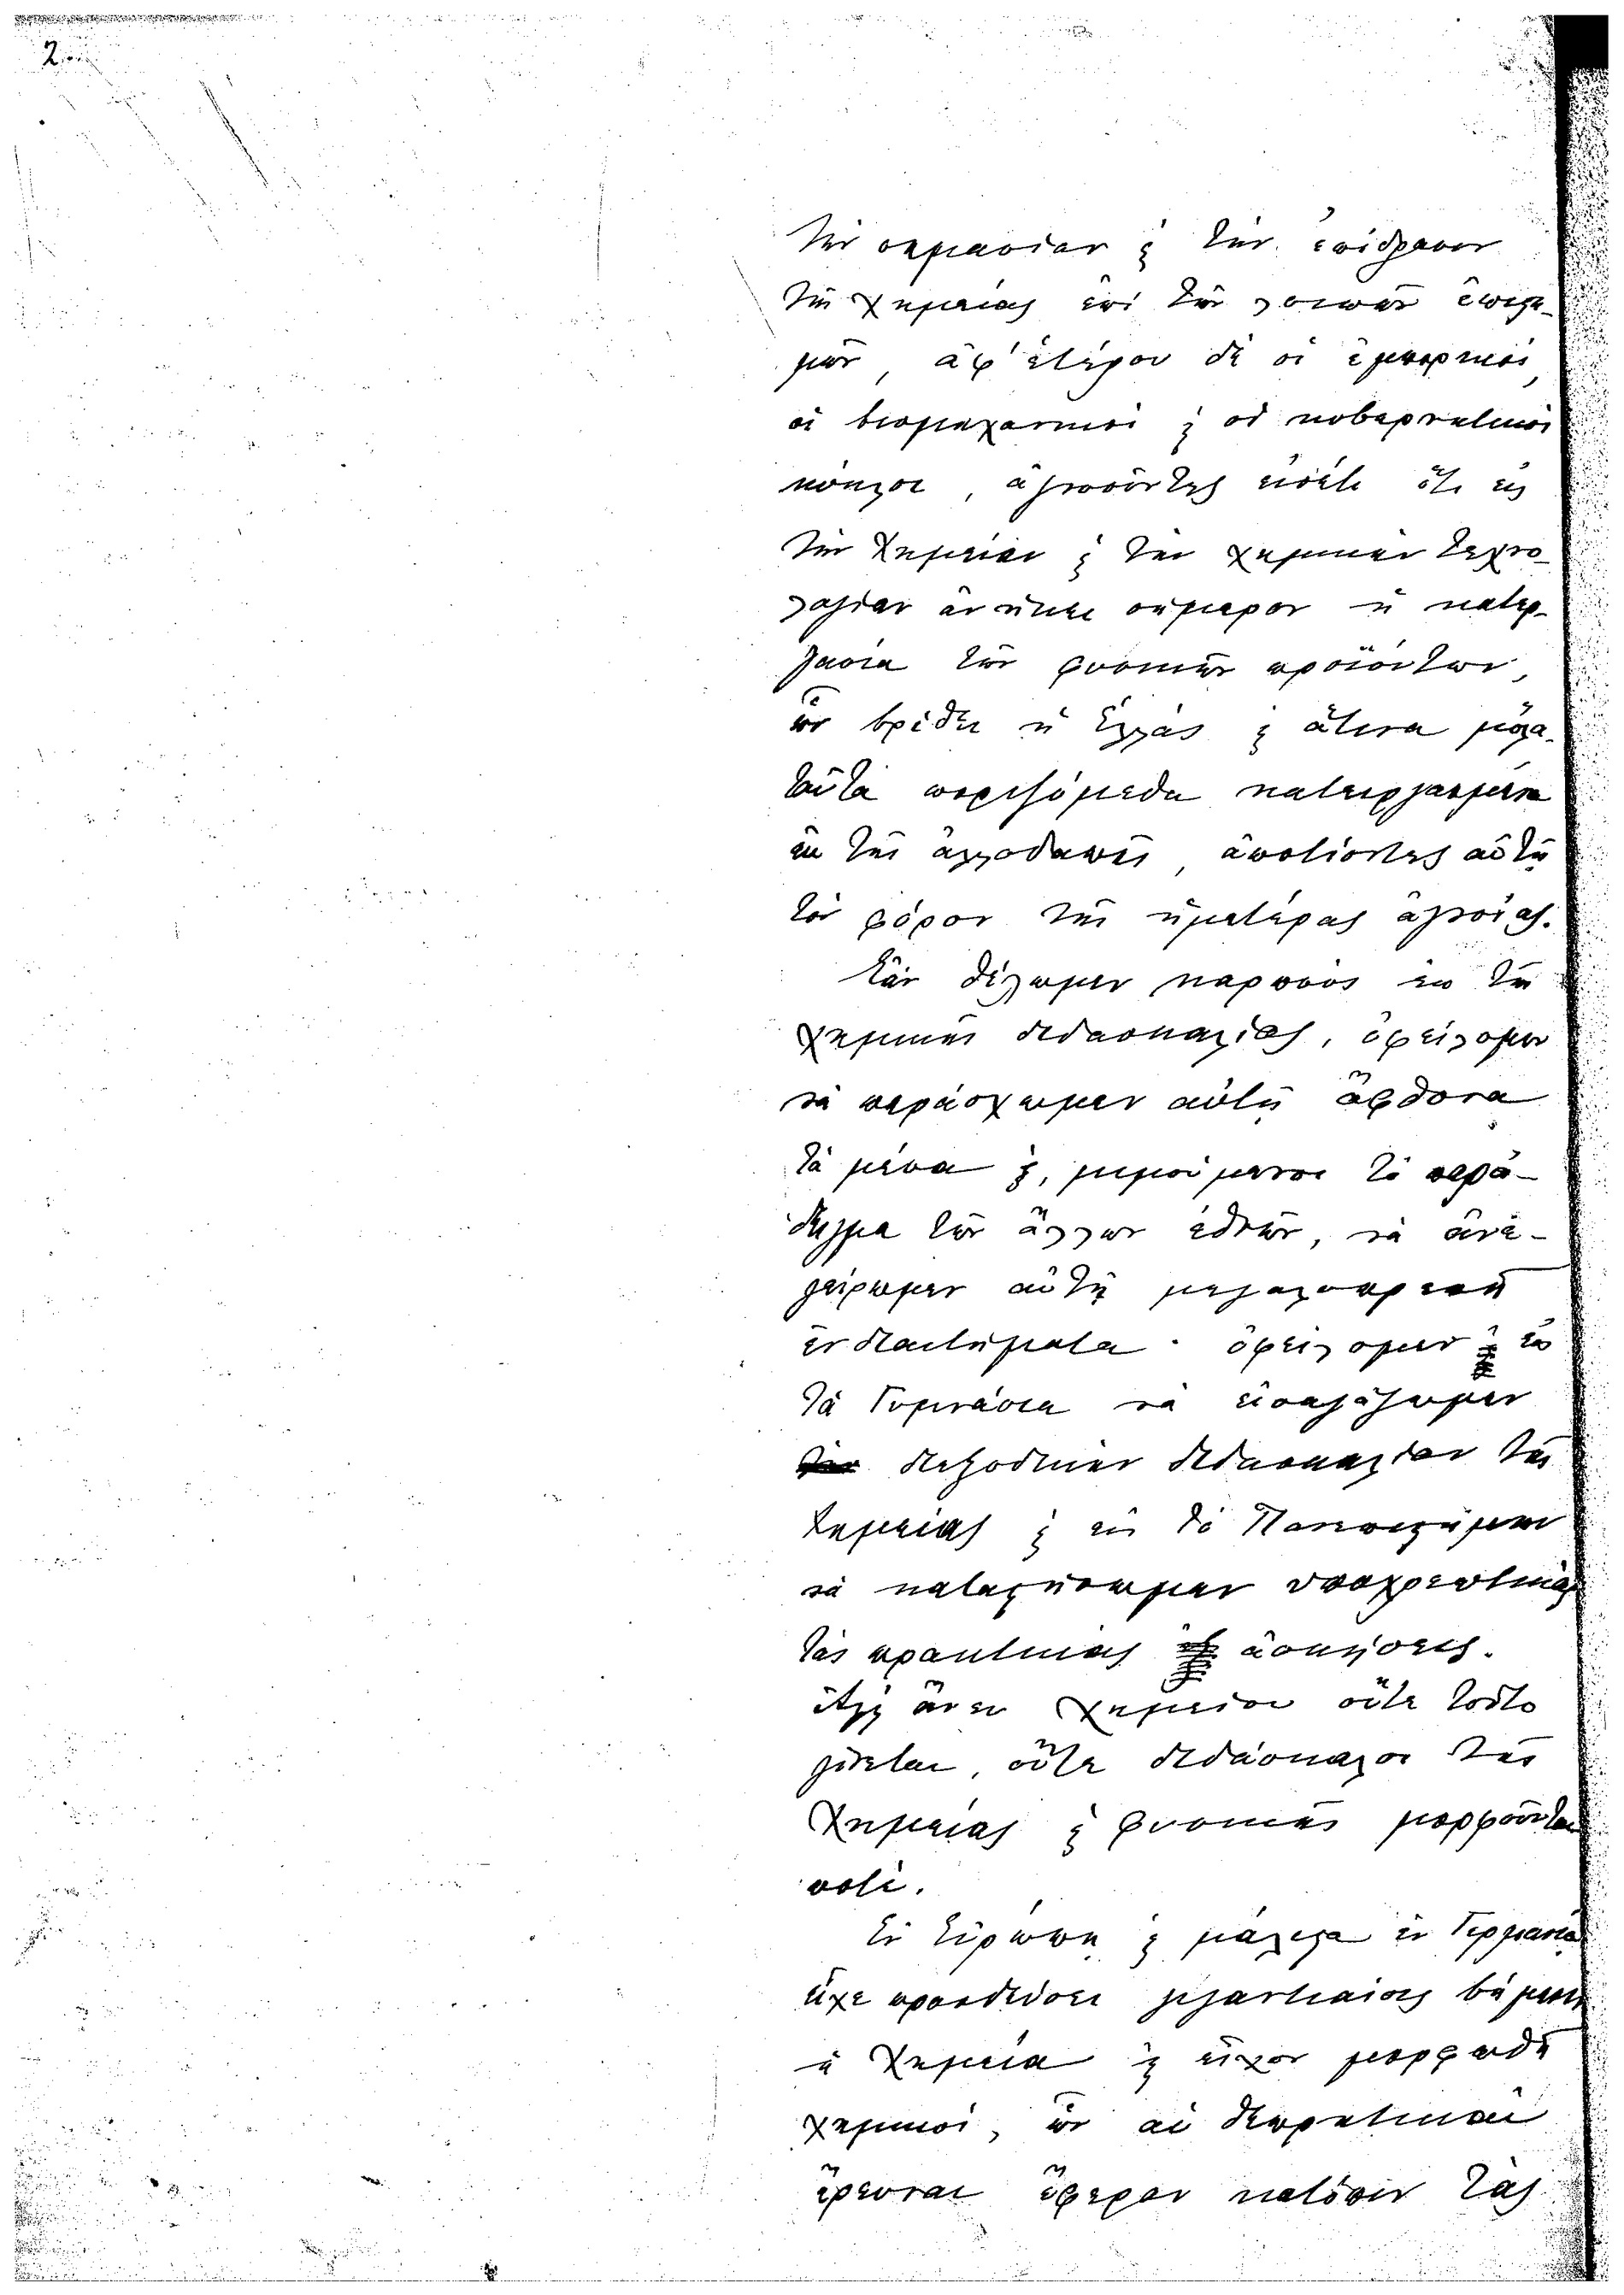 2
τὴν σημασίαν ϗ τὴν ἐπίδρασιν
τῆς χημείας ἐπὶ τῶν λοιπῶν ἐπιστη-
μῶν, ἀφ' ἑτέρου δὲ οἱ ἐμπορικοί,
οἱ βιομηχανικοὶ ϗ οἱ κυβερνητικοὶ
κύκλοι, ἀγνοοῦντες εἰσέτι ὅτι εἰς
τὴν Χημείαν ϗ τὴν χημικὴν τεχνο-
λογίαν ἀνήκει σήμερον ἡ κατερ-
γασία τῶν φυσικῶν προϊόντων,
ὧν βρίθει ἡ Ἑλλὰς ϗ ἅτινα μόλα-
ταῦτα ποριζόμεθα κατειργασμένα
ἐκ τῆς ἀλλοδαπῆς, ἀποτίοντες αὐτῇ
τὸν φόρον τῆς ἡμετέρας ἀγνοίας.
Ἐὰν θέλωμεν καρποὺς ἐκ τῆς
χημικῆς διδασκαλίας, ὀφείλομεν
νὰ παράσχωμεν αὐτῇ ἄφθονα
τὰ μέσα ϗ, μιμούμενοι τὸ παρά-
δειγμα τῶν ἄλλων ἐθνῶν, νὰ ἀνε-
γείρωμεν αὐτῇ μεγαλοπρεπῆ
ἐνδιαιτήματα· ὀφείλομεν ϗ εἰς
τὰ Γυμνάσια νὰ εἰσαγάγωμεν
διεξοδικὴν διδασκαλίαν τῆς
Χημείας ϗ εἰς τὸ Πανεπιστήμιον
νὰ καταστήσωμεν ὑποχρεωτικὰς
τὰς πρακτικὰς ἀσκήσεις.
Ἀλλ' ἄνευ Χημείου οὔτε τοῦτο
γίνεται, οὔτε διδάσκαλοι τῆς
Χημείας ϗ φυσικῆς μορφοῦνται
ποτέ.
Ἐν Εὐρώπῃ ϗ μάλιστα ἐν Γερμανίᾳ
εἶχε προοδεύσει γιγαντιαίοις βήμασι
ἡ Χημεία ϗ εἶχον μορφωθῆ
χημικοί, ὧν αἱ θεωρητικαὶ
ἔρευναι ἔφερον κατόπιν τὰς